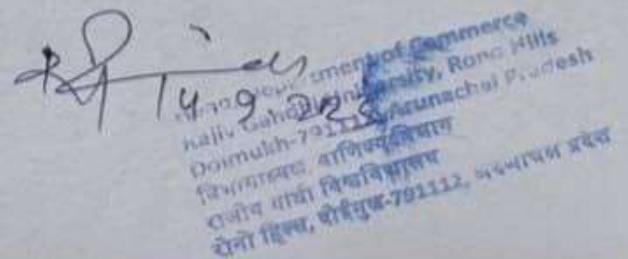 14.9.22
Department of Commerce
Rajiv Gandhi University, Rono Hills
Doimukh-791112, Arunachal Pradesh
विभागाध्यक्ष वाणिज्य विभाग
राजीव गांधी विश्वविद्यालय
रोनो हिल्स, दोईमुख-791112, अरुणाचल प्रदेश